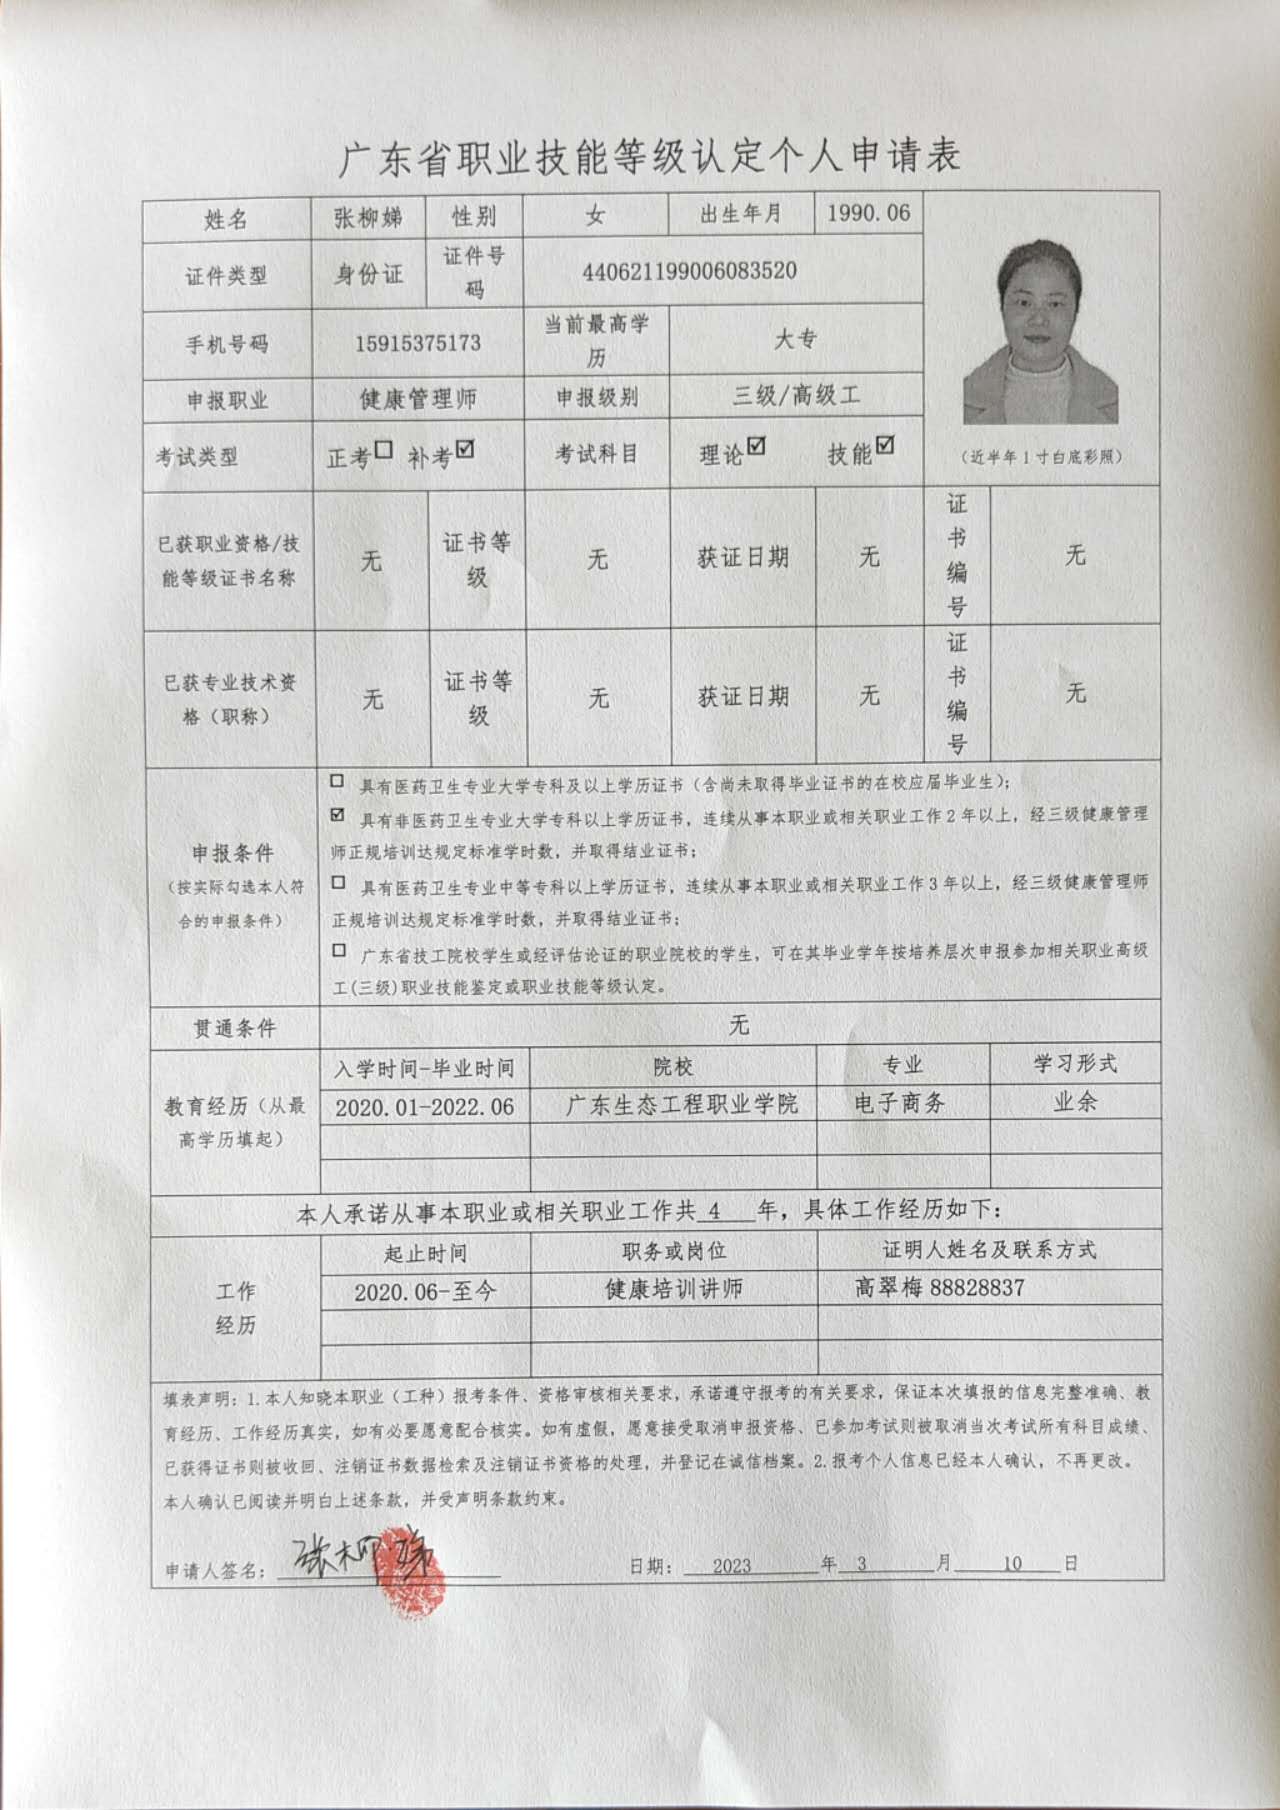 广东省职业技能等级认定个人申请表
姓名 张柳娣 性别 女 出生年月 1990.06
证件类型 身份证 证件号码 440621199006083520
手机号码 15915375173 当前最高学历 大专
申报职业 健康管理师 申报级别 三级/高级工
考试类型 正考☐ 补考☑ 考试科目 理论☑ 技能☑
(近半年1寸白底彩照)
已获职业资格/技能等级证书名称 无 证书等级 无 获证日期 无 证书编号 无
已获专业技术资格(职称) 无 证书等级 无 获证日期 无 证书编号 无
申报条件
(按实际勾选本人符合的申报条件)
☐ 具有医药卫生专业大学专科及以上学历证书(含尚未取得毕业证书的在校应届毕业生);
☑ 具有非医药卫生专业大学专科以上学历证书,连续从事本职业或相关职业工作2年以上,经三级健康管理
师正规培训达规定标准学时数,并取得结业证书;
☐ 具有医药卫生专业中等专科以上学历证书,连续从事本职业或相关职业工作3年以上,经三级健康管理师
正规培训达规定标准学时数,并取得结业证书;
☐ 广东省技工院校学生或经评估论证的职业院校的学生,可在其毕业学年按培养层次申报参加相关职业高级
工(三级)职业技能鉴定或职业技能等级认定。
贯通条件 无
教育经历(从最高学历填起)
入学时间-毕业时间 院校 专业 学习形式
2020.01-2022.06 广东生态工程职业学院 电子商务 业余
本人承诺从事本职业或相关职业工作共 4 年,具体工作经历如下:
工作经历
起止时间 职务或岗位 证明人姓名及联系方式
2020.06-至今 健康培训讲师 高翠梅 88828837
填表声明:1.本人知晓本职业(工种)报考条件、资格审核相关要求,承诺遵守报考的有关要求,保证本次填报的信息完整准确、教
育经历、工作经历真实,如有必要愿意配合核实。如有虚假,愿意接受取消申报资格、已参加考试则被取消当次考试所有科目成绩、
已获得证书则被收回、注销证书数据检索及注销证书资格的处理,并登记在诚信档案。2.报考个人信息已经本人确认,不再更改。
本人确认已阅读并明白上述条款,并受声明条款约束。
申请人签名: 张柳娣 日期: 2023 年 3 月 10 日